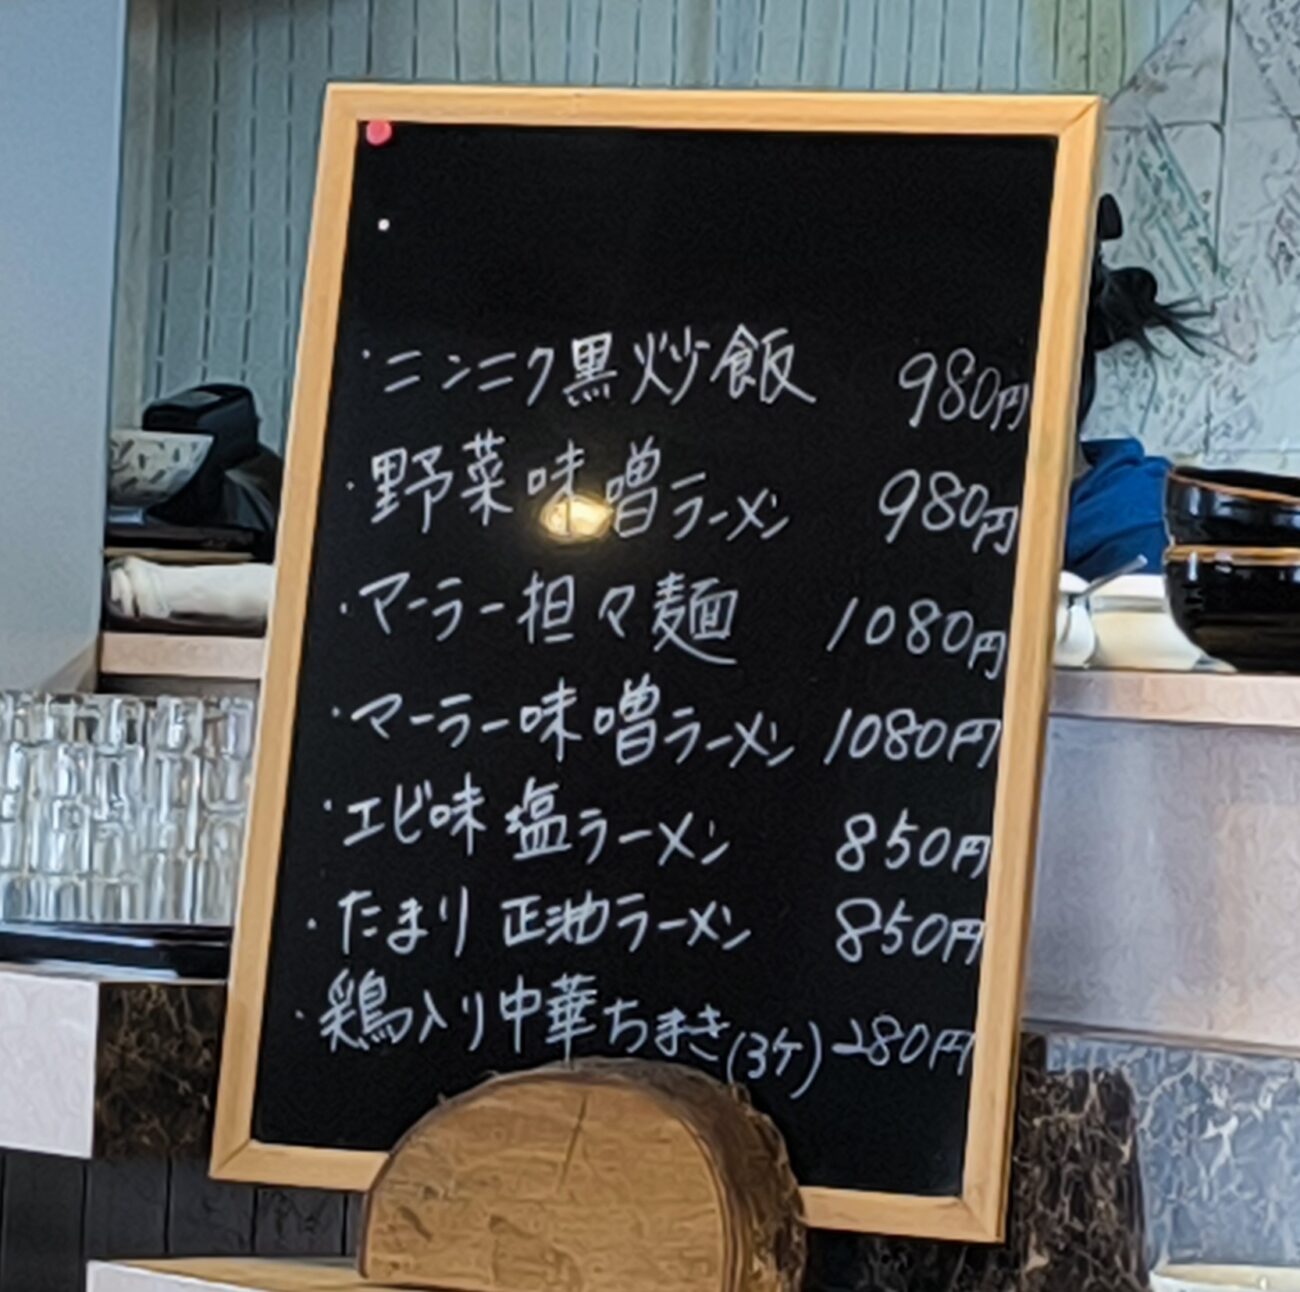 ・ニンニク黒炒飯 980円
・野菜味噌ラーメン 980円
・マーラー担々麺 1080円
・マーラー味噌ラーメン 1080円
・エビ味塩ラーメン 850円
・たまり正油ラーメン 850円
・鶏入り中華ちまき(3ケ) 280円